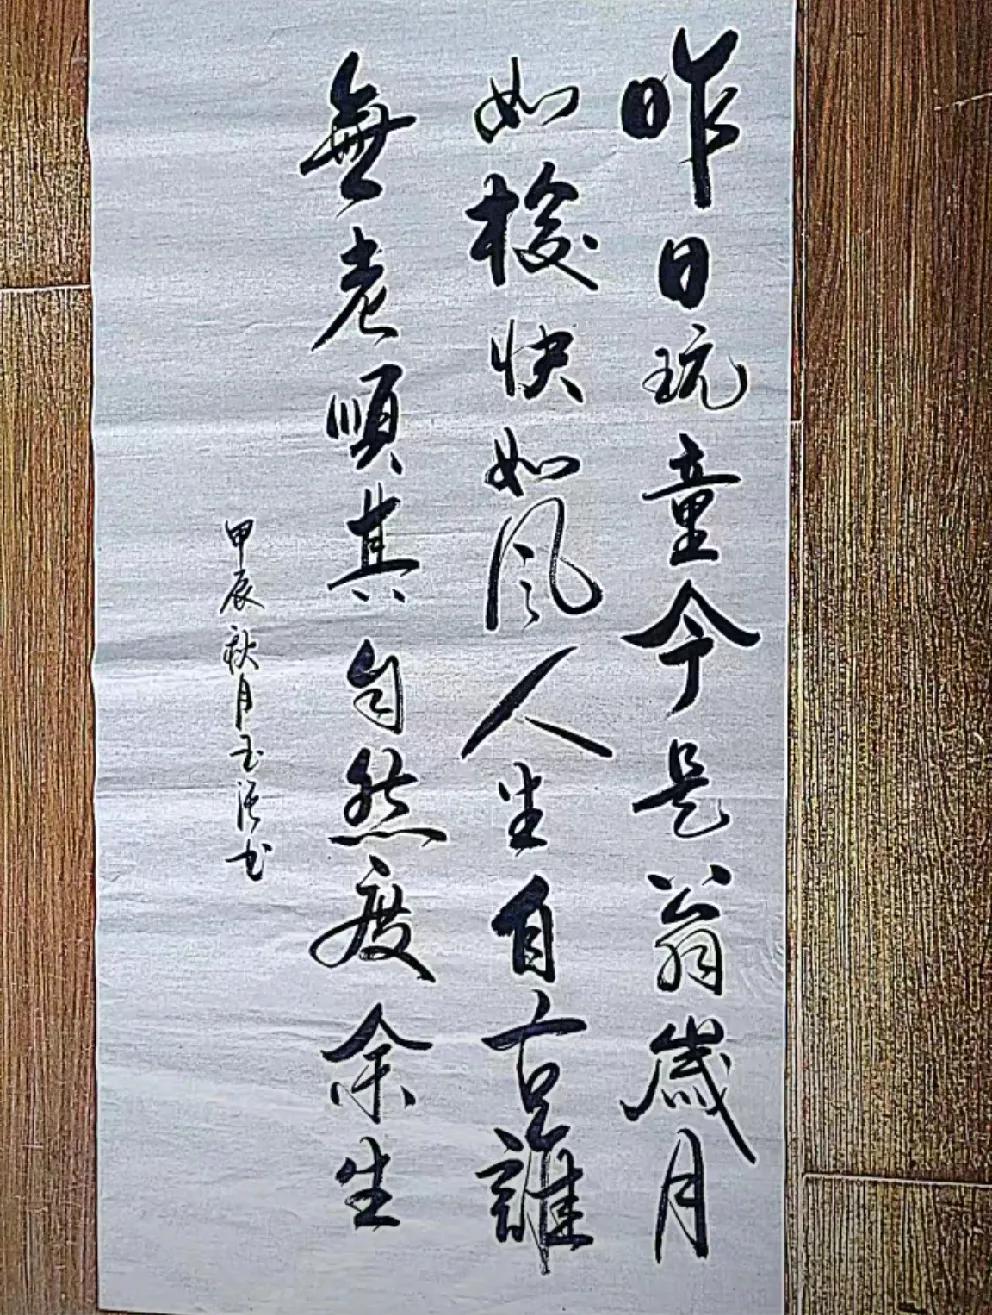 昨日玩童今是翁歲月
如梭快如風人生自古誰
無老順其自然度余生
甲辰秋月玉洪书